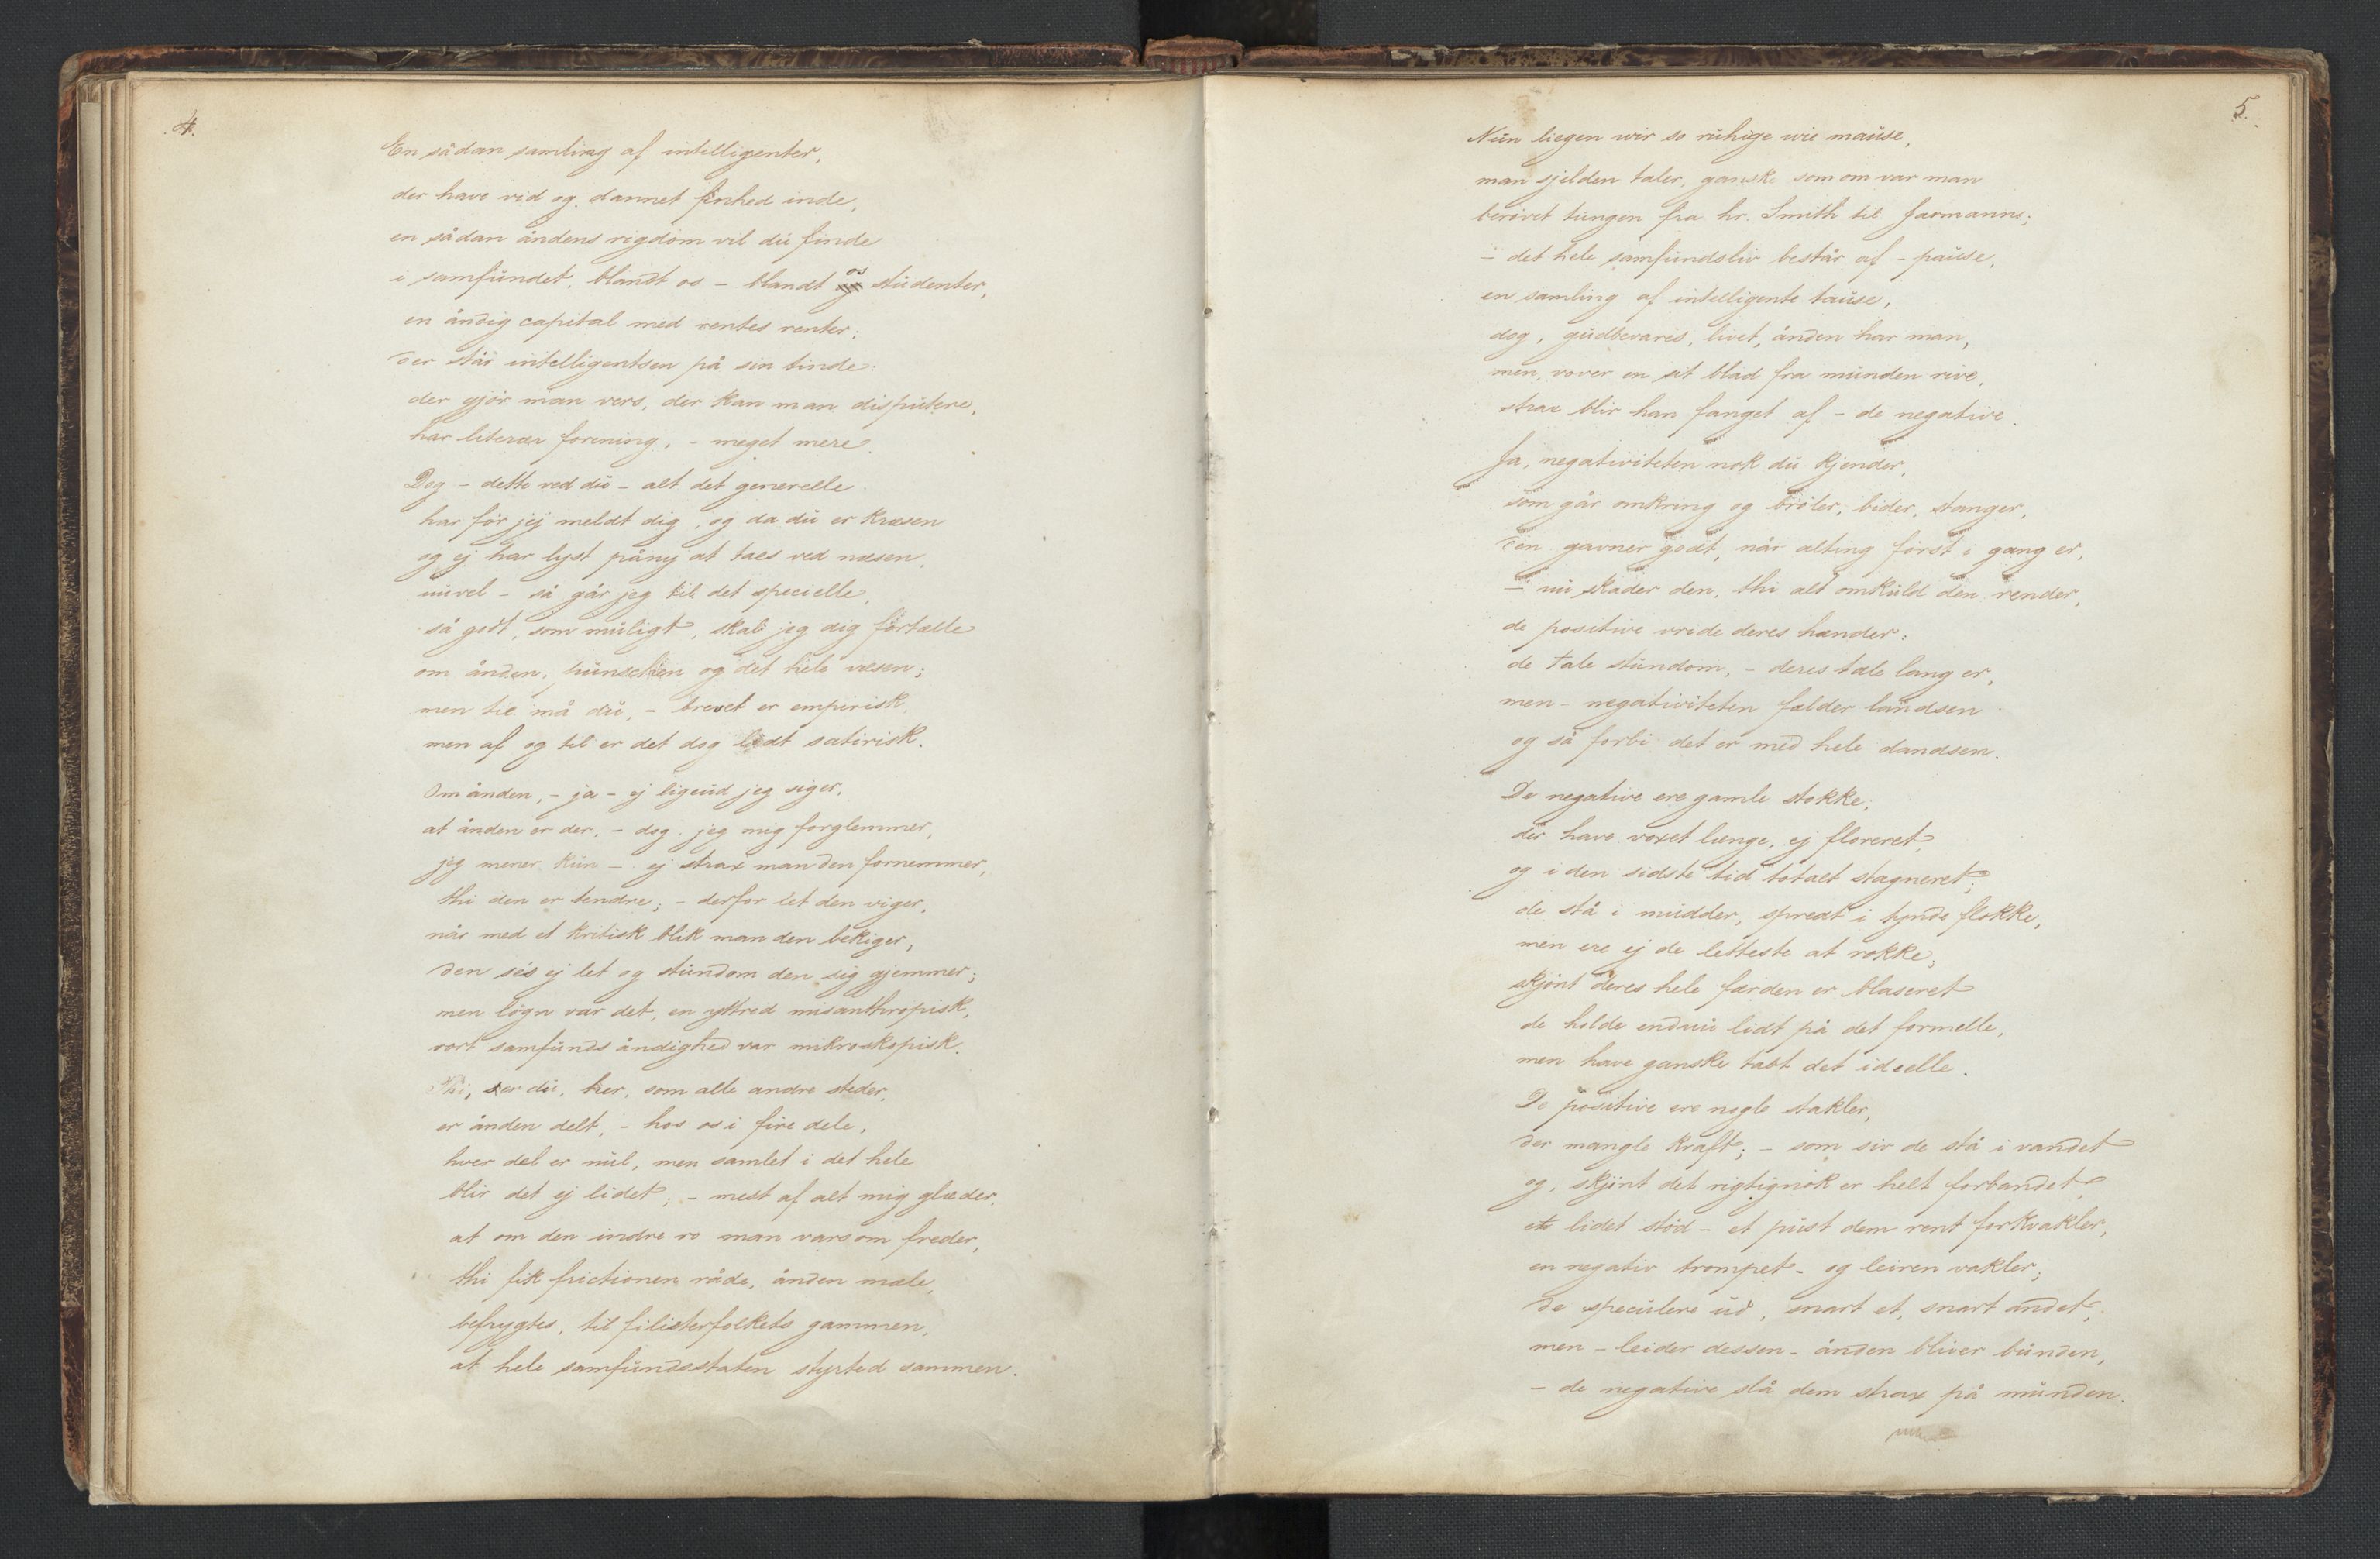 4.
En sådan samling af intelligenter,
der have vid og dannet finhed inde,
en sådan åndens rigdom vil du finde
i samfundet, blandt os – blandt os studenter,
en åndig capital med rentes renter;
der står intelligentsen på sin tinde:
der gjør man vers, der kan man disputere,
har literær forening, – meget mere.
Dog – dette ved du – alt det generelle
har før jeg meldt dig, og da du er kræsen
og ej har lyst påny at taes ved næsen,
nuvel – så går jeg til det specielle,
så godt, som muligt, skal jeg dig fortælle
om ånden, punschen og det hele væsen;
men til må du, – brevet er empirisk,
men af og til er det dog lidt satirisk.
Om ånden, – ja – ej ligeud jeg siger,
at ånden er der, – dog, jeg mig forglemmer,
jeg mener kun – ej strax man den fornemmer,
thi den er tendre; – derfor let den viger,
når med et kritisk blik man den bekiger,
den sés ej let og stundom den sig gjemmer;
men løgn var det, en yttred misanthropisk,
vort samfunds åndighed var mikroskopisk.
Thi, ser du, her, som alle andre steder,
er ånden delt, – hos os i fire dele,
hver del er nul, men samlet i det hele
blir det ej lidet; – mest af alt mig glæder,
at om den indre ro man varsom freder,
thi fik frictionen råde, ånden mæle,
befrygtes, til filisterfolkets gammen,
at hele samfundsstaten styrted sammen.
5.
Nun liegen wir so ruhige wie mause,
man sjelden taler, ganske som om var man
berøvet tungen fra hr. Smith til Jaomanns;
– det hele samfundsliv består af – pause,
en samling af intelligente tause,
dog, gudbevares, livet, ånden har man,
men, vover en sit blad fra munden rive,
strax blir han fanget af – de negative.
Ja, negativiteten nok du kjender,
som går omkring og brøler, bider, stanger,
den gavner godt, når alting først i gang er,
– nu skader den, thi alt omkuld den render,
de positive vride deres hænder;
de tale stundom, – deres tale lang er,
men – negativiteten fælder landsen
og så forbi det er med hele dandsen.
De negative ere gamle stokke,
der have voxet længe, ej floreret,
og i den sidste tid totalt stagneret;
de stå i mudder, spredt i tynde flokke,
men ere ej de letteste at rokke;
skjønt deres hele færden er blaseret
de holde endnu lidt på det formelle,
men have ganske tabt det ideelle.
De positive ere nogle stakler,
der mangle kraft; – som siv de stå i vandet
og, skjønt det rigtignok er helt forbandet,
et lidet stød – et pust dem rent forkvakler,
en negativ trompet – og leiren vakler;
de speculere ud, snart et, snart andet,
men – leider dessen – ånden bliver bunden,
– de negative slå dem strax på munden.